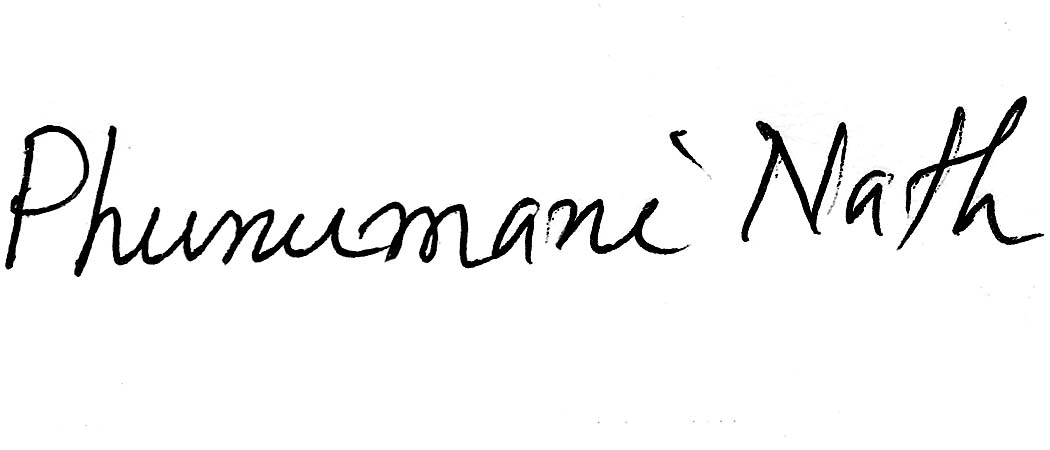 Phunumani Nath